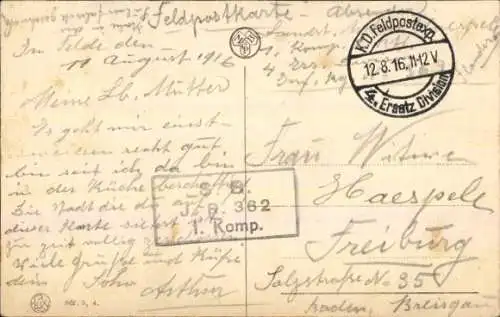 Feldpostkarte - Absender
Im Felde den
11 August 1916
1. Komp.
4 Ers
Inf. Rg
K.D. Feldpostexp.
12.8.16. 11-12 V
4. Ersatz Division
Meine Lb. Mutter
Es geht mir einst-
weilen recht gut
bin seit ich da bin
in der Küche beschäftigt
Die Stadt die du auf
dieser Karte siehst ist
zur zeit völlig
Viele Grüße und Küße
dein Sohn
Arthur
S. B.
J. R. 362
1. Komp.
Frau Witwe
Haespele
Freiburg
Salzstraße No 35
Baden, Breisgau